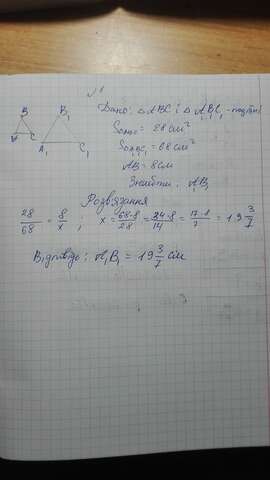 №1
B
B₁
A
C
A₁
C₁
Дано: △ABC і △A₁B₁C₁ - подібні
S_ABC = 28 см²
S_A₁B₁C₁ = 68 см²
AB = 8 см
Знайти: A₁B₁
Розв'язання
28/68 = 8/x ; x = 68·8/28 = 34·8/14 = 17·8/7 = 19 3/7
Відповідь: A₁B₁ = 19 3/7 см